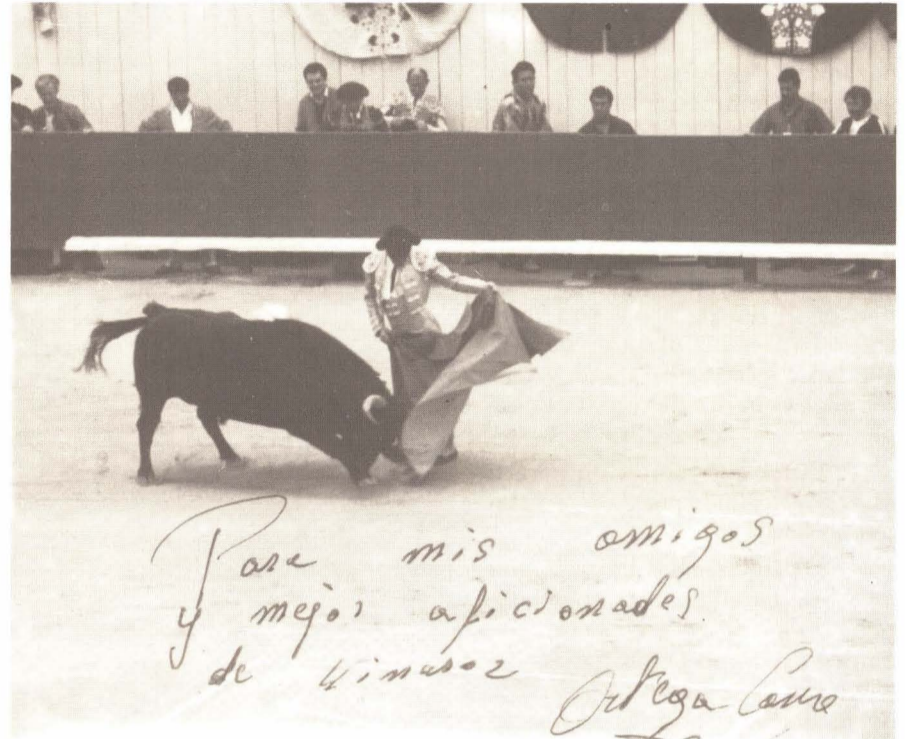 Para mis amigos
y mejor aficionados
de Vinaroz
Ortega Cano